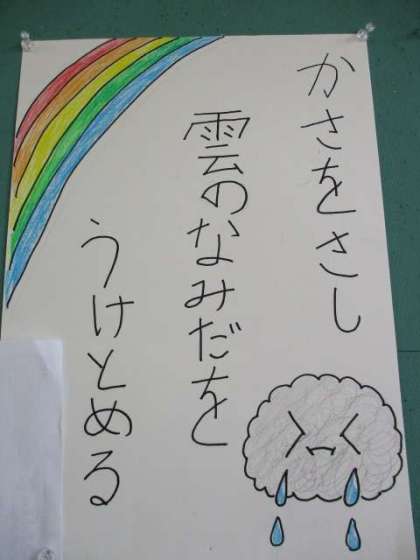 かさをさし
雲のなみだを
うけとめる